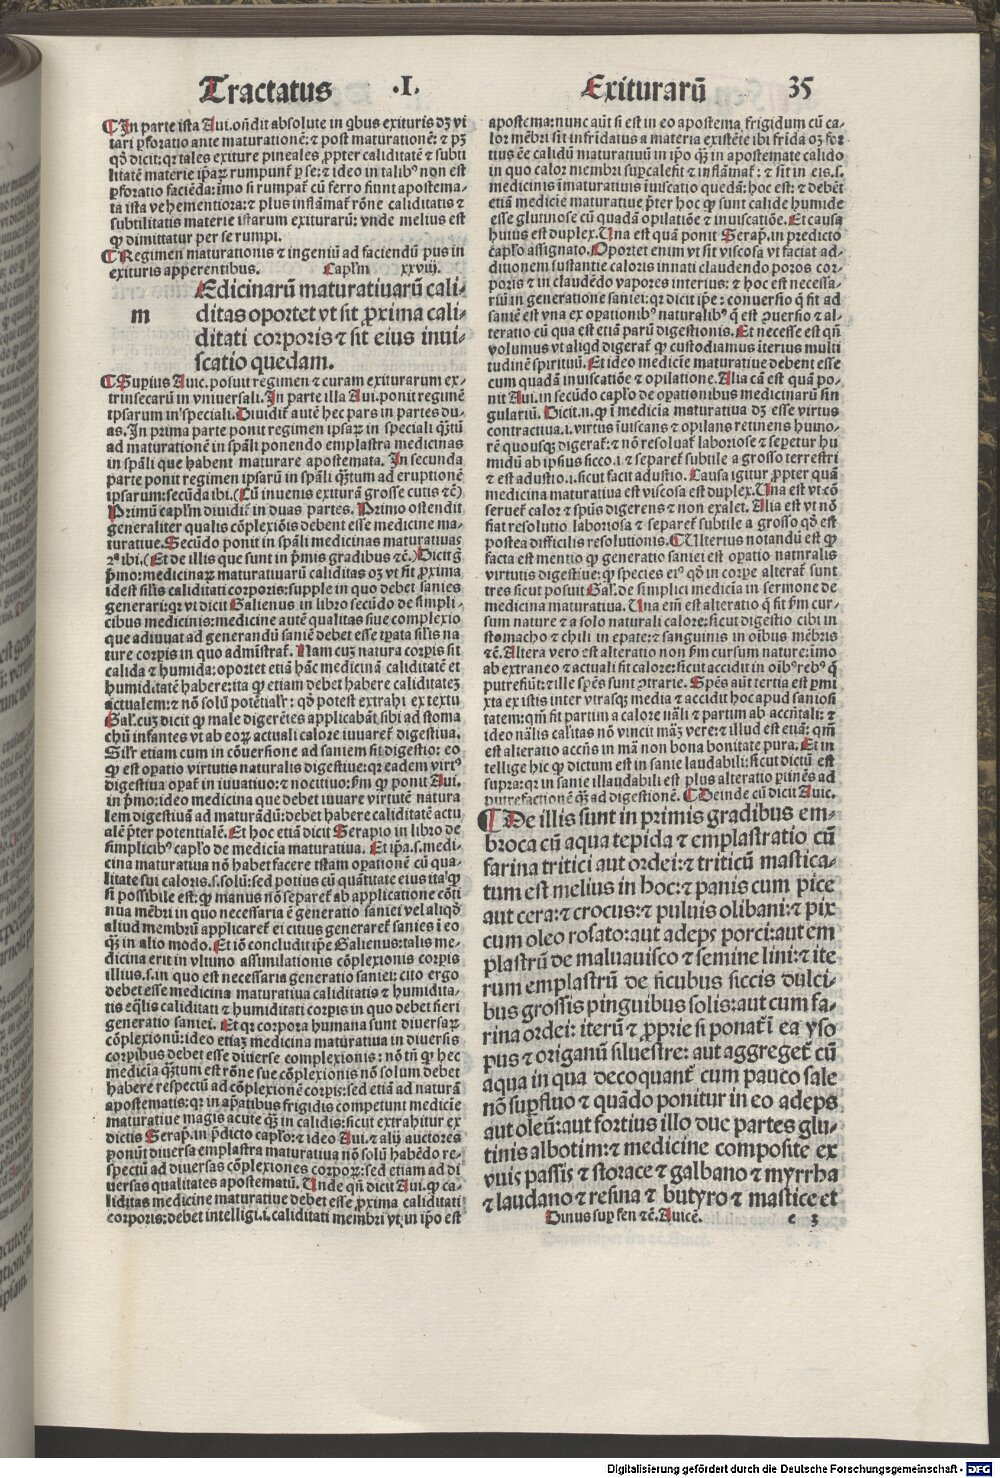 Tractatus .I. Exiturarū 35
¶In parte ista Aui. oñdit absolute in qbus exituris dꝫ vi
tari pforatio ante maturationē: ⁊ post maturationē: ⁊ pꝫ
qđ dicit: qꝛ tales exiture pineales ꝓpter caliditatē ⁊ subti
litatē materie ipaꝝ rumpunt̄ p se: ⁊ ideo in talibꝰ non est
pforatio faciēda: imo si rumpat̄ cū ferro fiunt apostema⸗
ta ista vehementiora: ⁊ plus inflāmat̄ rōne caliditatis ⁊
subtilitatis materie istarum exiturarū: vnde melius est
ꝙ dimittatur per se rumpi.
¶Regimen maturationis ⁊ ingeniū ad faciendū pus in
exituris apperentibus. Caplm xxviij.
m Edicinarū maturatiuarū cali⸗
ditas oportet vt sit ꝓxima cali⸗
ditati corporis ⁊ sit eius inui⸗
scatio quedam.
¶Supius Auic. posuit regimen ⁊ curam exiturarum ex⸗
trinsecarū in vniuersali. In parte illa Aui. ponit regimē
ipsarum in speciali. Diuidit̄ autē hec pars in partes du⸗
as. In prima parte ponit regimen ipsaꝝ in speciali q̄ꝫtū
ad maturationē in spāli ponendo emplastra medicinas
in spāli que habent maturare apostemata. In secunda
parte ponit regimen ipsarū in spāli q̄ꝫtum ad eruptionē
ipsarum: secūda ibi. (Cū inuenis exiturā grosse cutis ⁊c̄)
Primū caplm diuidit̄ in duas partes. Primo ostendit
generaliter qualis cōplexiōis debent esse medicine ma⸗
turatiue. Secūdo ponit in spāli medicinas maturatiuas
2ᵃ ibi. (Et de illis que sunt in p̄mis gradibus ⁊c̄.) Dicit g̊
p̄mo: medicinaꝝ maturatiuarū caliditas oꝫ vt sit ꝓxima
idest silis caliditati corporis: supple in quo debet sanies
generari: qꝛ vt dicit Galienus in libro secūdo de simpli⸗
cibus medicinis: medicine autē qualitas siue complexio
que adiuuat ad generandū saniē debet esse tpata silis na
ture corpis in quo admistrat̄. Nam cuꝫ natura corpis sit
calida ⁊ humida: oportet etiā hāc medicinā caliditatē et
humiditatē habere: ita ꝙ etiam debet habere caliditateꝫ
actualem: ⁊ nō solū potētialꝛ: qđ potest extrahi ex textu
Gal. cuꝫ dicit ꝙ male digerētes applicabāt sibi ad stoma
chū infantes vt ab eoꝝ actuali calore iuuaret̄ digestiua.
Silr etiam cum in cōuersione ad saniem sit digestio: eo
ꝙ est opatio virtutis naturalis digestiue: qꝛ eadem virtꝰ
digestiua opat̄ in iuuatiuo: ⁊ nocitiuo: p̄m ꝙ ponit Aui.
in p̄mo: ideo medicina que debet iuuare virtutē natura
lem digestiuā ad maturādū: debet habere caliditatē actu
alē p̄ter potentialē. Et hoc etiā dicit Serapio in libro de
simplicibꝰ caplo de medicia maturatiua. Et ipa.s.medi⸗
cina maturatiua nō habet facere istam opationē cū qua⸗
litate sui caloris.s.solū: sed potius cū quātitate eius ita ꝙ
si possibile est: ꝙ manus nō separet̄ ab applicatione cōti
nua mēbri in quo necessaria ē generatio saniei vel aliqđ
aliud membrū applicaret̄ ei citius generaret̄ sanies ī eo
q̄ꝫ in alio modo. Et iō concludit ipe Galienus: talis me⸗
dicina erit in vltimo assimilationis cōplexionis corpis
illius.s.in quo est necessaria generatio saniei: cito ergo
debet esse medicina maturatiua caliditatis ⁊ humidita⸗
tis eqlis caliditati ⁊ humiditati corpis in quo debet fieri
generatio saniei. Et qꝛ corpora humana sunt diuersaꝝ
cōplexionū: ideo etiaꝫ medicina maturatiua in diuersis
corpibus debet esse diuerse complexionis: nō tn̄ ꝙ hec
medicia q̄ꝫtum est rōne sue cōplexionis nō solum debet
habere respectū ad cōplexionē corpis: sed etiā ad naturā
apostematis: qꝛ in apatibus frigidis competunt medicie
maturatiue magis acute q̄ꝫ in calidis: sicut extrahitur ex
dictis Serap. in p̄dicto caplo: ⁊ ideo Aui. ⁊ alij auctores
ponūt diuersa emplastra maturatiua nō solū habēdo re⸗
spectū ad diuersas cōplexiones corpoꝝ: sed etiam ad di
uersas qualitates apostematū. Unde qn̄ dicit Aui. ꝙ ca⸗
liditas medicine maturatiue debet esse ꝓxima caliditati
corporis: debet intelligi.i. caliditati membri vt in ipo est
apostema: nunc aūt si est in eo apostema frigidum cū ca⸗
lor mēbri sit infridatus a materia existēte ibi frida oꝫ for
tius ēe calidū maturatiuū in ipo q̄ꝫ in apostemate calido
in quo calor membri supcalefit ⁊ inflāmat̄: ⁊ sit in eis.s.
medicinis imaturatiuis iuiscatio quedā: hoc est: ⁊ debēt
etiā medicie maturatiue p̄ter hoc ꝙ sunt calide humide
esse glutinose cū quadā opilatiōe ⁊ inuiscatiōe. Et causa
huius est duplex. Una est quā ponit Serap. in predicto
caplo assignato. Oportet enim vt sit viscosa vt faciat ad⸗
ditionem sustantie caloris innati claudendo poros cor⸗
poris ⁊ in claudēdo vapores interius: ⁊ hoc est necessa⸗
riū in generatione saniei: qꝛ dicit ipe: conuersio q̄ fit ad
saniē est vna ex opationibꝰ naturalibꝰ q̄ est ꝯuersio ⁊ al⸗
teratio cū qua est etiā parū digestionis. Et necesse est qn̄
volumus vt aliqd digerat̄ ꝙ custodiamus īterius multi
tudinē spirituū. Et ideo medicie maturatiue debent esse
cum quadā inuiscatiōe ⁊ opilatione. Alia cā est quā po⸗
nit Aui. in secūdo caplo de opationibus medicinarū sin
gulariū. Dicit.n. ꝙ ī medicia maturatiua dꝫ esse virtus
contractiua.i. virtus iuiscans ⁊ opilans retinens humo⸗
rē quousqꝫ digerat̄: ⁊ nō resoluat̄ laboriose ⁊ sepetur hu
midū ab ipsius sicco.i. ⁊ separet̄ subtile a grosso terrestri
⁊ est adustio.i. sicut facit adustio. Causa igitur ꝓpter quā
medicina maturatiua est viscosa est duplex. Una est vt cō
seruet̄ calor ⁊ spūs digerens ⁊ non exalet. Alia est vt nō
fiat resolutio laboriosa ⁊ separet̄ subtile a grosso qđ est
postea difficilis resolutionis. ¶Ulterius notandū est ꝙ
facta est mentio ꝙ generatio saniei est opatio naturalis
virtutis digestiue: ꝙ species eiꝰ qđ in corpe alterat̄ sunt
tres sicut posuit Gal. de simplici medicia in sermone de
medicina maturatiua. Una em̄ est alteratio q̄ fit p̄m cur⸗
sum nature ⁊ a solo naturali calore: sicut digestio cibi in
stomacho ⁊ chili in epate: ⁊ sanguinis in oībus mēbris
⁊c̄. Altera vero est alteratio non p̄m cursum nature: imo
ab extraneo ⁊ actuali fit calore: sicut accidit in oībꝰ rebꝰ q̄
putrefiūt: ⁊ ille spēs sunt ꝯtrarie. Spēs aūt tertia est pmi
xta ex istis inter vtrasqꝫ media ⁊ accidit hoc apud saniosi
tatem: qm̄ fit partim a calore nāli ⁊ partim ab accn̄tali: ⁊
ideo nālis calitas nō vincit māꝫ vere: ⁊ illud est etiā: qm̄
est alteratio accn̄s in mā non bona bonitate pura. Et in
tellige hic ꝙ dictum est in sanie laudabili: sicut dictū est
supra: qꝛ in sanie illaudabili est plus alteratio ptinēs ad
putrefactionē q̄ꝫ ad digestionē. ¶Deinde cū dicit Auic.
¶De illis sunt in primis gradibus em⸗
broca cū aqua tepida ⁊ emplastratio cū
farina tritici aut ordei: ⁊ triticū mastica⸗
tum est melius in hoc: ⁊ panis cum pice
aut cera: ⁊ crocus: ⁊ puluis olibani: ⁊ pix
cum oleo rosato: aut adeps porci: aut em
plastrū de maluauisco ⁊ semine lini: ⁊ ite
rum emplastrū de ficubus siccis dulci⸗
bus grossis pinguibus solis: aut cum fa⸗
rina ordei: iterū ⁊ ꝓprie si ponat̄ ī ea yso
pus ⁊ origanū siluestre: aut aggreget̄ cū
aqua in qua decoquant̄ cum pauco sale
nō supfluo ⁊ quādo ponitur in eo adeps
aut oleū: aut fortius illo due partes glu⸗
tinis albotim: ⁊ medicine composite ex
vuis passis ⁊ storace ⁊ galbano ⁊ myrrha
⁊ laudano ⁊ resina ⁊ butyro ⁊ mastice et
Dinus sup fen ⁊c̄. Auicē. e 3
Digitalisierung gefördert durch die Deutsche Forschungsgemeinschaft - DFG